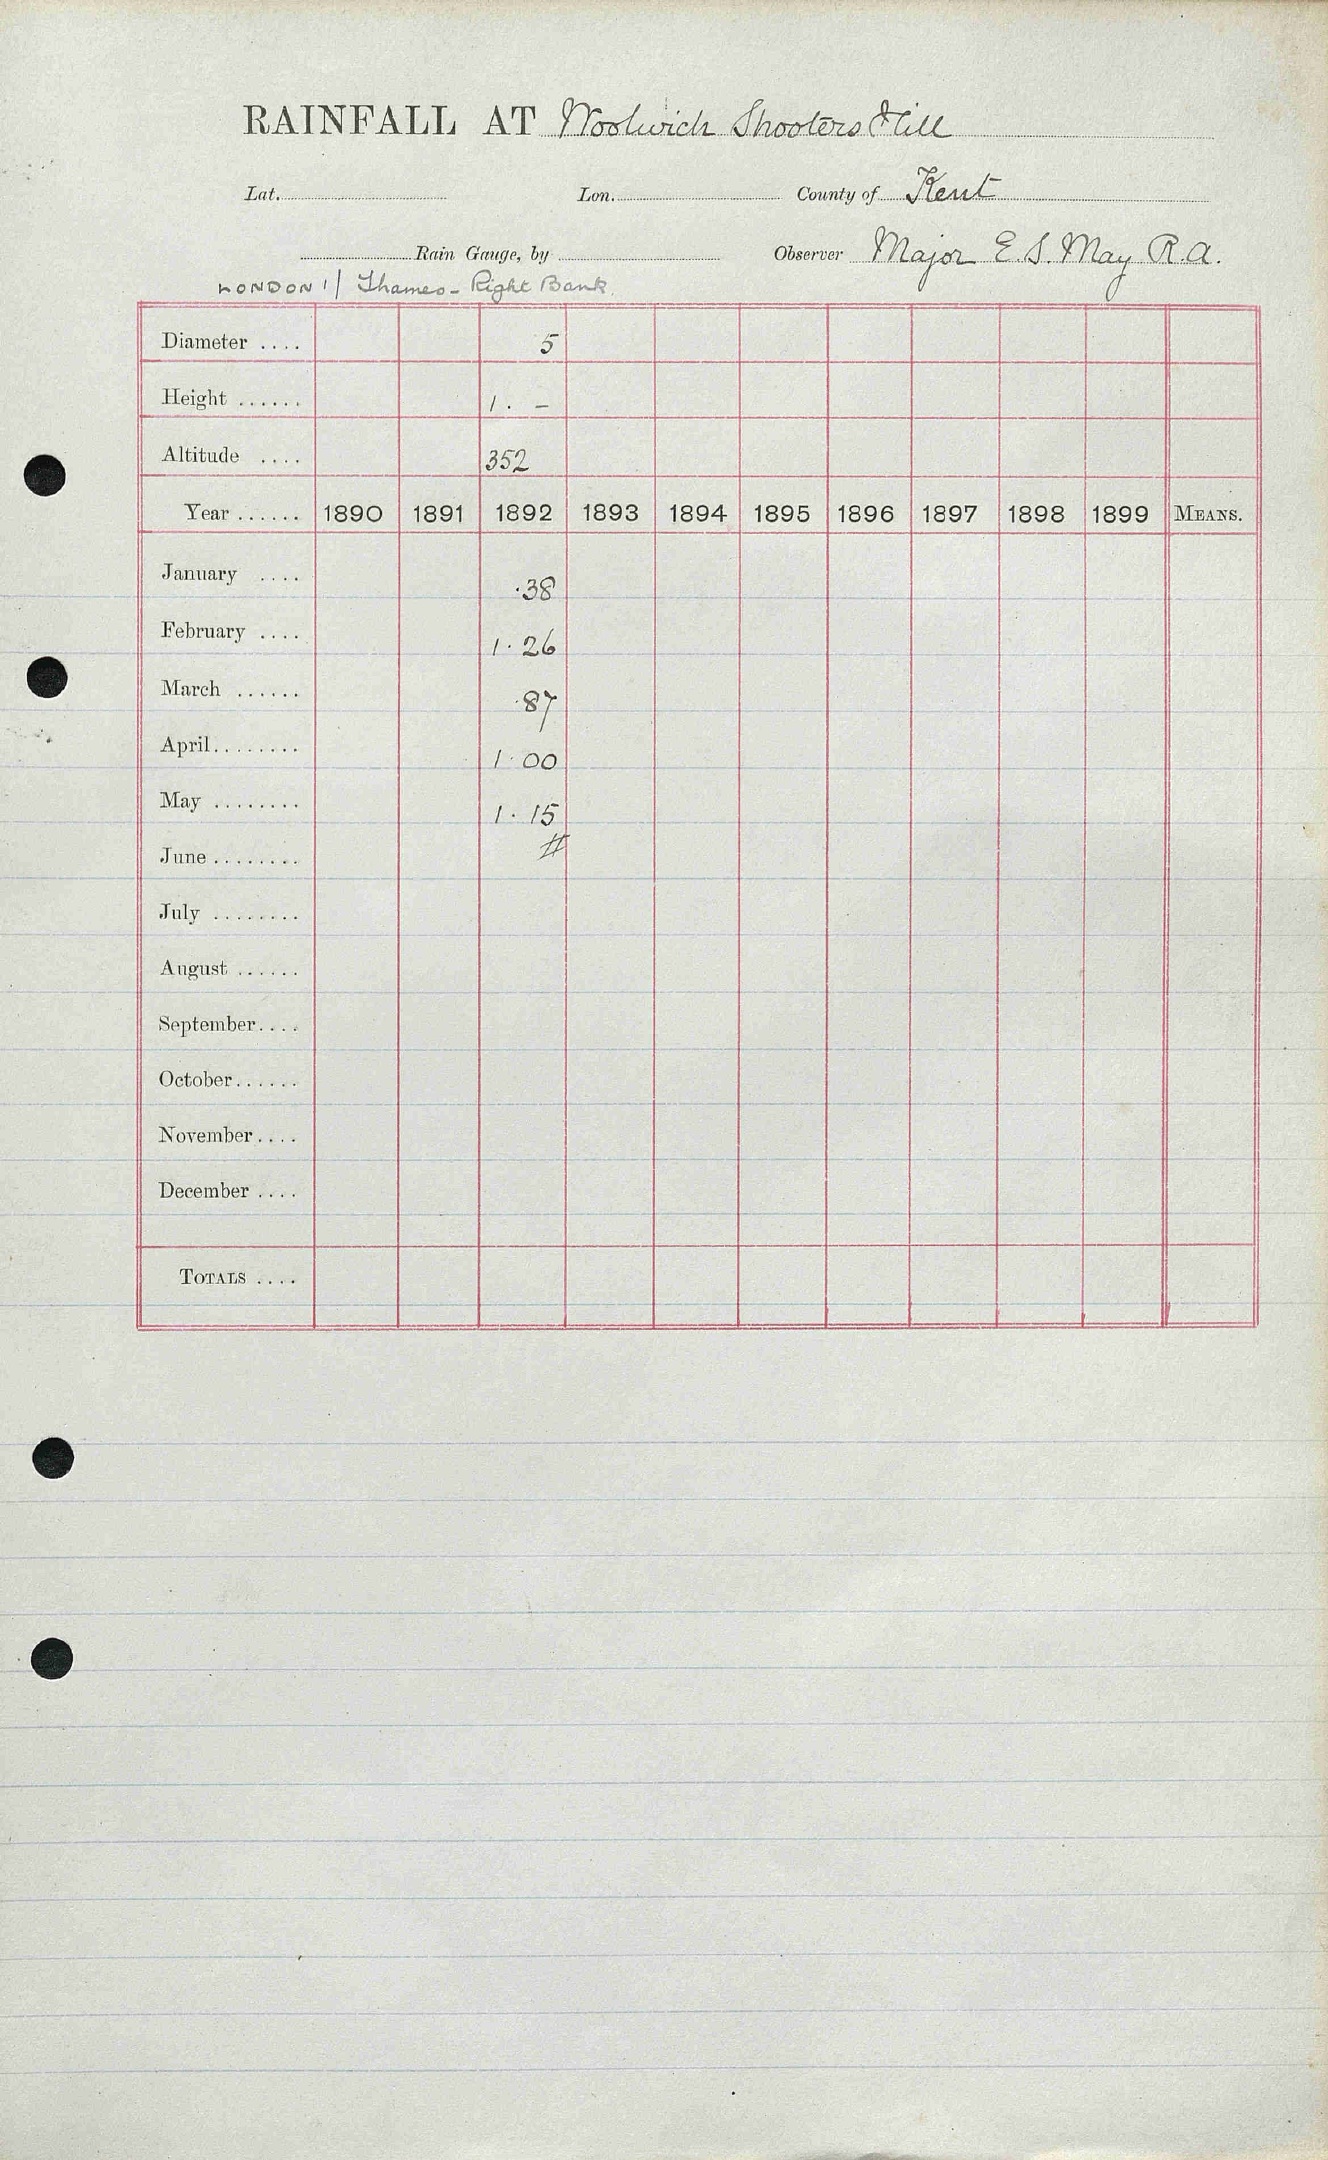 RAINFALL AT Woolwich Shooters Hill
Lat. Lon. County of Kent
Rain Gauge, by Observer Major E. S. May R.A.
LONDON 1/ Thames - Right Bank
Diameter .... 5
Height ...... 1 . -
Altitude .... 352
Year ...... 1890 1891 1892 1893 1894 1895 1896 1897 1898 1899 MEANS.
January .... .38
February .... 1.26
March ...... .87
April........ 1.00
May ........ 1.15
June ........ #
July ........
August ......
September....
October......
November....
December ....
TOTALS ....